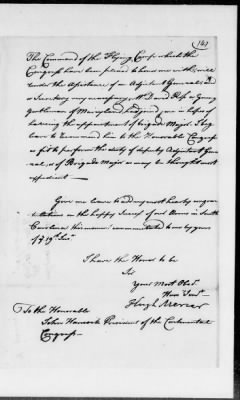 161
The Command of the Flying Camp which the
Congress have been pleased to honor me with, will
under the Assistance of an Adjutant General, and
a Secretary my necessary. Mr David Ross a Young
Gentleman of Maryland had joined me in hopes of
obtaining the appointment of brigade Major. I beg
leave to recommend him to the Honorable Congress
as fit to perform the duty of deputy Adjutant Gene
ral, or of Brigade Major as may be thought most
expedient
Give me leave to add my most hearty congra
tulations on the happy Success of our Arms in South
Carolina this moment communicated to me by yours
of 19th Inst
I have the Honor to be
Sir
Your Most Obed.
Hum Servt
Hugh Mercer
To the Honorable
John Hancock President of the Continental
Congress